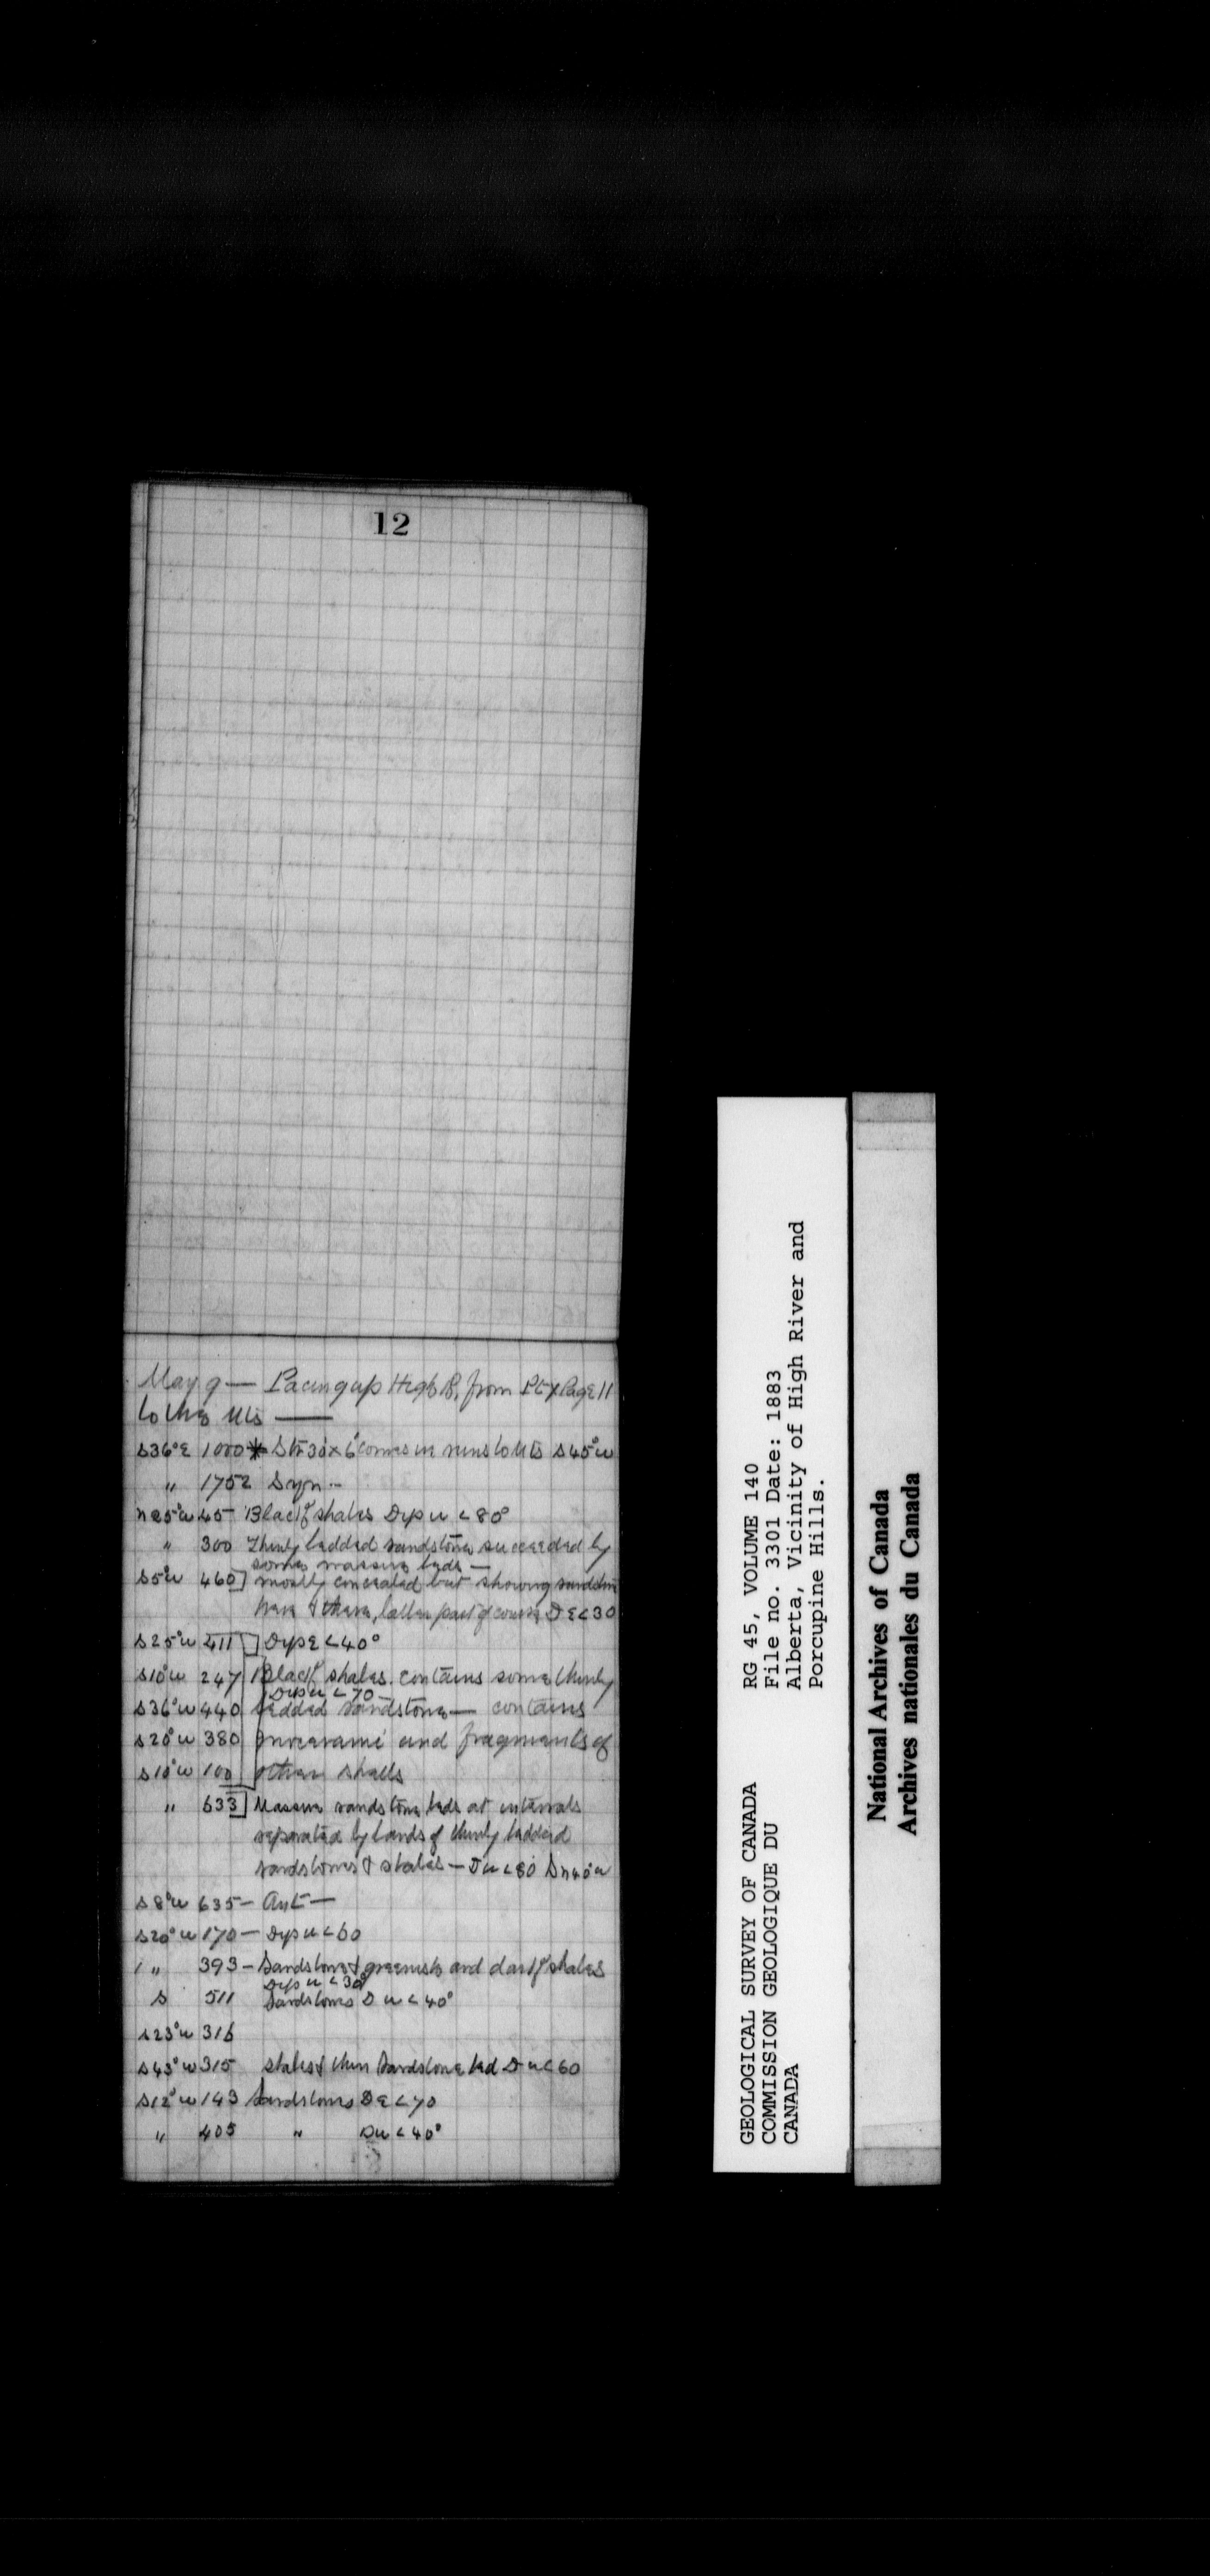 12
May 9 — Pacing up High R. from Pt X Page 11
to the Mts —
S36°E 1000 * Str 30 x 6 comes in runs to Mts S45°W
" 1752 Syn —
N25°W 45 Black shales Dip W < 80°
" 300 Thinly bedded sandstone succeeded by
some massive beds —
S5°W 460] mostly concealed but showing sandstone
here & there, latter part of course D E < 30
S25°W 411 ] Dip E < 40°
S10°W 247 Black shales. contains some thinly
Dip W < 70
S36°W 440 bedded sandstone — contains
S20°W 380 inocerami and fragments of
S10°W 100 other shells
" 633] Massive sandstone beds at intervals
separated by bands of thinly bedded
sandstones & shales — W < 80 N40°W
S8°W 635 — Ant —
S20°W 170 — Dip W < 60
" 393 — Sandstone & greenish and dark shales
Dip W < 30°
S 511 Sandstones D W < 40°
S23°W 316
S43°W 315 shales & thin sandstone bed D W < 60
S12°W 143 Sandstones D E < 70
" 405 " D W < 40°
GEOLOGICAL SURVEY OF CANADA
COMMISSION GEOLOGIQUE DU
CANADA
RG 45, VOLUME 140
File no. 3301 Date: 1883
Alberta, Vicinity of High River and
Porcupine Hills.
National Archives of Canada
Archives nationales du Canada